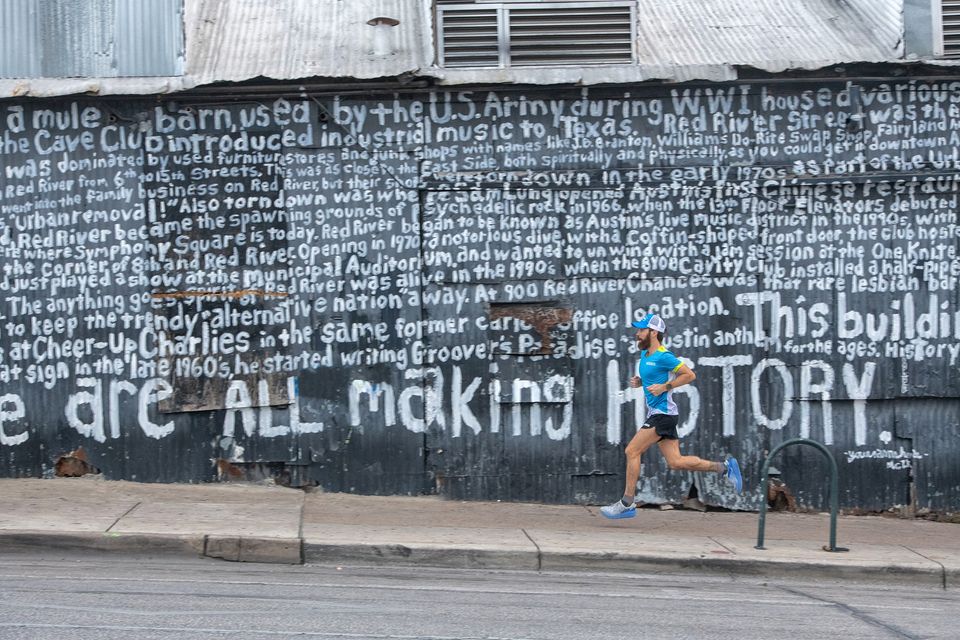 a mule barn, used by the U.S. Army during WWI housed various
the Cave Club introduced industrial music to Texas. Red River Street was the
was dominated by used furniture stores and junk shops with names like J.B. Branton, Williams Do-Rite Swap Shop, Fairyland A
Red River from 6th to 15th Streets. This was as close to the East Side, both spiritually and physically, as you could get in downtown A
went into the family business on Red River, but their sto torn down in the early 1970s as part of the Ur
urban removal!" Also torn down was where Sam Lung opened Austin's first Chinese restau
Red River became the spawning grounds of psychedelic rock in 1966, when the 13th Floor Elevators debuted
re where Symphony Square is today. Red River began to be known as Austin's live music district in the 1990s, with
the corner of 8th and Red River. Opening in 1970 a notorious dive with a Coffin-shaped front door the club hoste
just played a show at the Municipal Auditorium and wanted to unwind with a jam session at the One Knite
The anything goes alive in the 1990s when the 810 Cavity Club installed a half-pipe
to keep the trendy "alternative" nation away. At 900 Red River, Chances was that rare lesbian bar
at Cheer-Up Charlies in the same former car lot office location. This buildin
at sign in the late 1960s, he started writing Groover's Paradise, Austin anth for the ages. History
e are ALL making HISTORY.